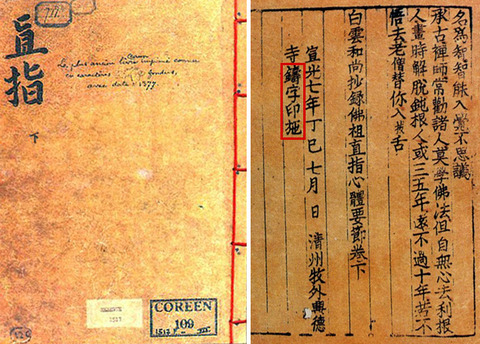 直指
下
Le plus ancien livre coréen imprimé connu
en caractères fondus,
avec date = 1377.
COREEN
109
名爲智智能入覺不思議
承古禪師常勸諸人莫學佛法但自無心去利根
人晝時解脫鈍根人或三五年遠不過十年若不
悟去老僧替你入拔舌
白雲和尚抄錄佛祖直指心體要節卷下
宣光七年丁巳七月 日 淸州牧外興德
寺鑄字印施